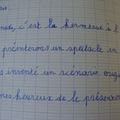 c'est la kermesse à l
présenterons un spectacle in
inventé un scénario orig
mes heureux de le présenter